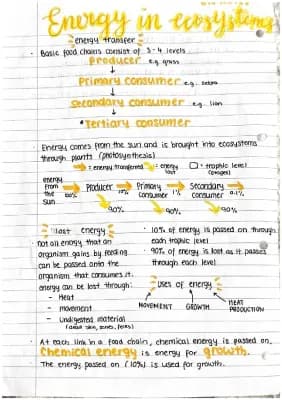 Energy in ecosystems
energy transfer
- Basic food chains consist of 3-4 levels
Producer e.g. grass
Primary consumer e.g. zebra
Secondary consumer e.g. lion
Tertiary consumer
- Energy comes from the sun and is brought into ecosystems
through plants (photosynthesis)
= energy transferred = energy lost = trophic level (stages)
energy from the sun 100% Producer 10% Primary consumer 1% Secondary consumer 0.1%
90% 90% 90%
lost energy
- not all energy that an
organism gains by feeding
can be passed onto the
organism that consumes it.
energy can be lost through:
- Heat
- movement
- Undigested material
(dead skin, bones, feces)
- 10% of energy is passed on through
each trophic level
- 90% of energy is lost as it passes
through each level
Uses of energy
MOVEMENT GROWTH HEAT PRODUCTION
- At each link in a food chain, chemical energy is passed on.
Chemical energy is energy for growth.
The energy passed on (10%) is used for growth.